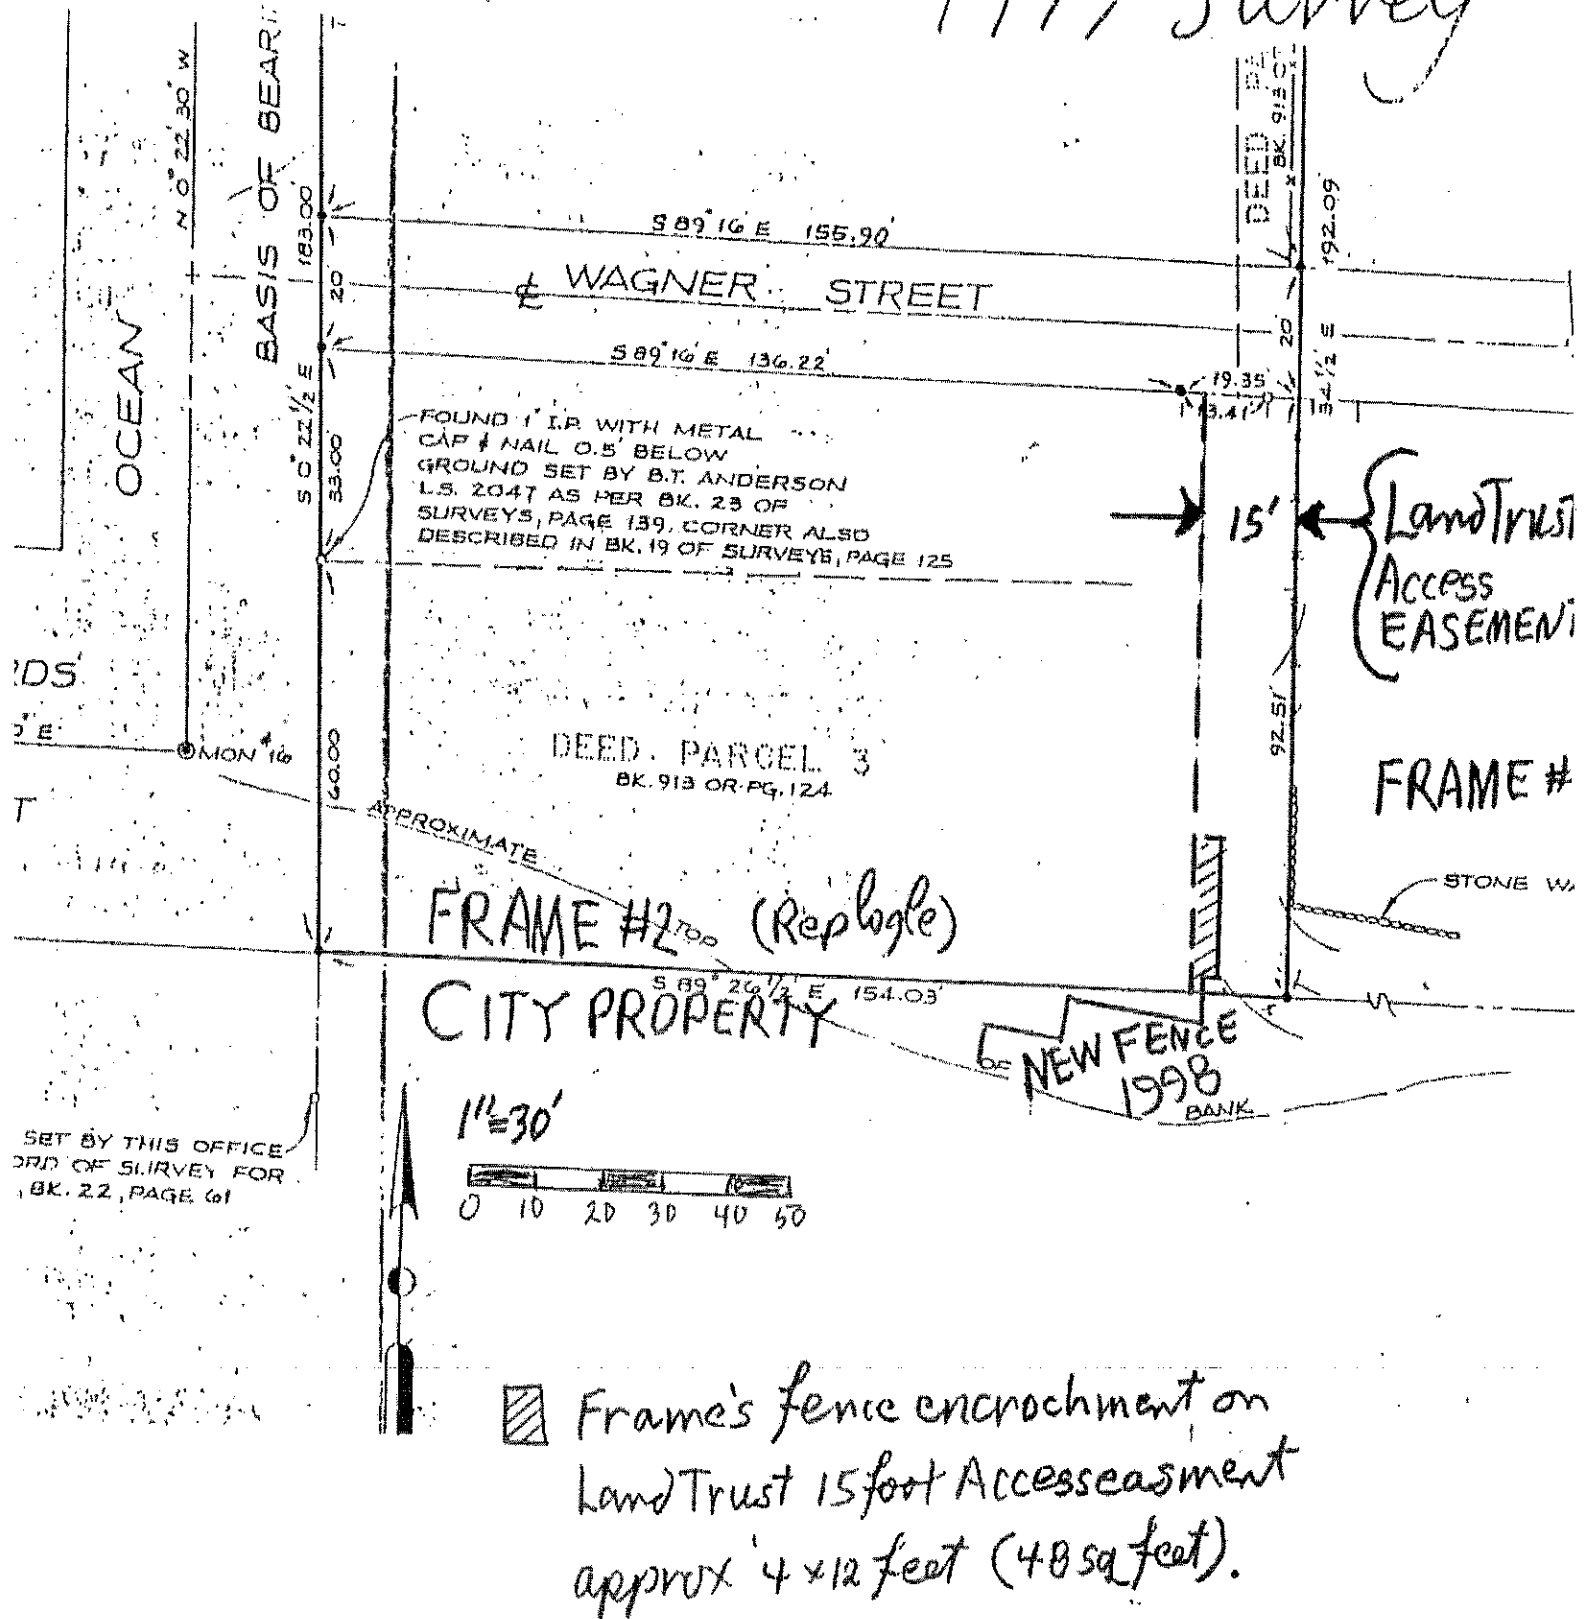 Survey
N 0° 22' 30" W
OCEAN
BASIS OF BEARI
183.00'
20
S 0° 22 1/2' E
33.00
60.00
S 89° 16' E 155.90'
℄ WAGNER STREET
S 89° 16' E 136.22'
DEED
BK. 913 O
192.09
20'
34 1/2' E
19.35'
13.41'
FOUND 1" I.P. WITH METAL
CAP & NAIL 0.5' BELOW
GROUND SET BY B.T. ANDERSON
L.S. 2047 AS PER BK. 23 OF
SURVEYS, PAGE 139. CORNER ALSO
DESCRIBED IN BK. 19 OF SURVEYS, PAGE 125
15'
Land Trust
Access
EASEMENT
92.51'
RDS
0" E
MON #16
T
DEED PARCEL 3
BK. 913 OR PG. 124
FRAME #
APPROXIMATE
TOP
OF
BANK
STONE WA
FRAME #2 (Replogle)
S 89° 26 1/2' E 154.03'
CITY PROPERTY
NEW FENCE
1998
SET BY THIS OFFICE
ORD OF SURVEY FOR
, BK. 22, PAGE 61
1"=30'
0 10 20 30 40 50
Frame's fence encrochment on
Land Trust 15 foot Access easment
approx 4 x 12 feet (48 sq feet).